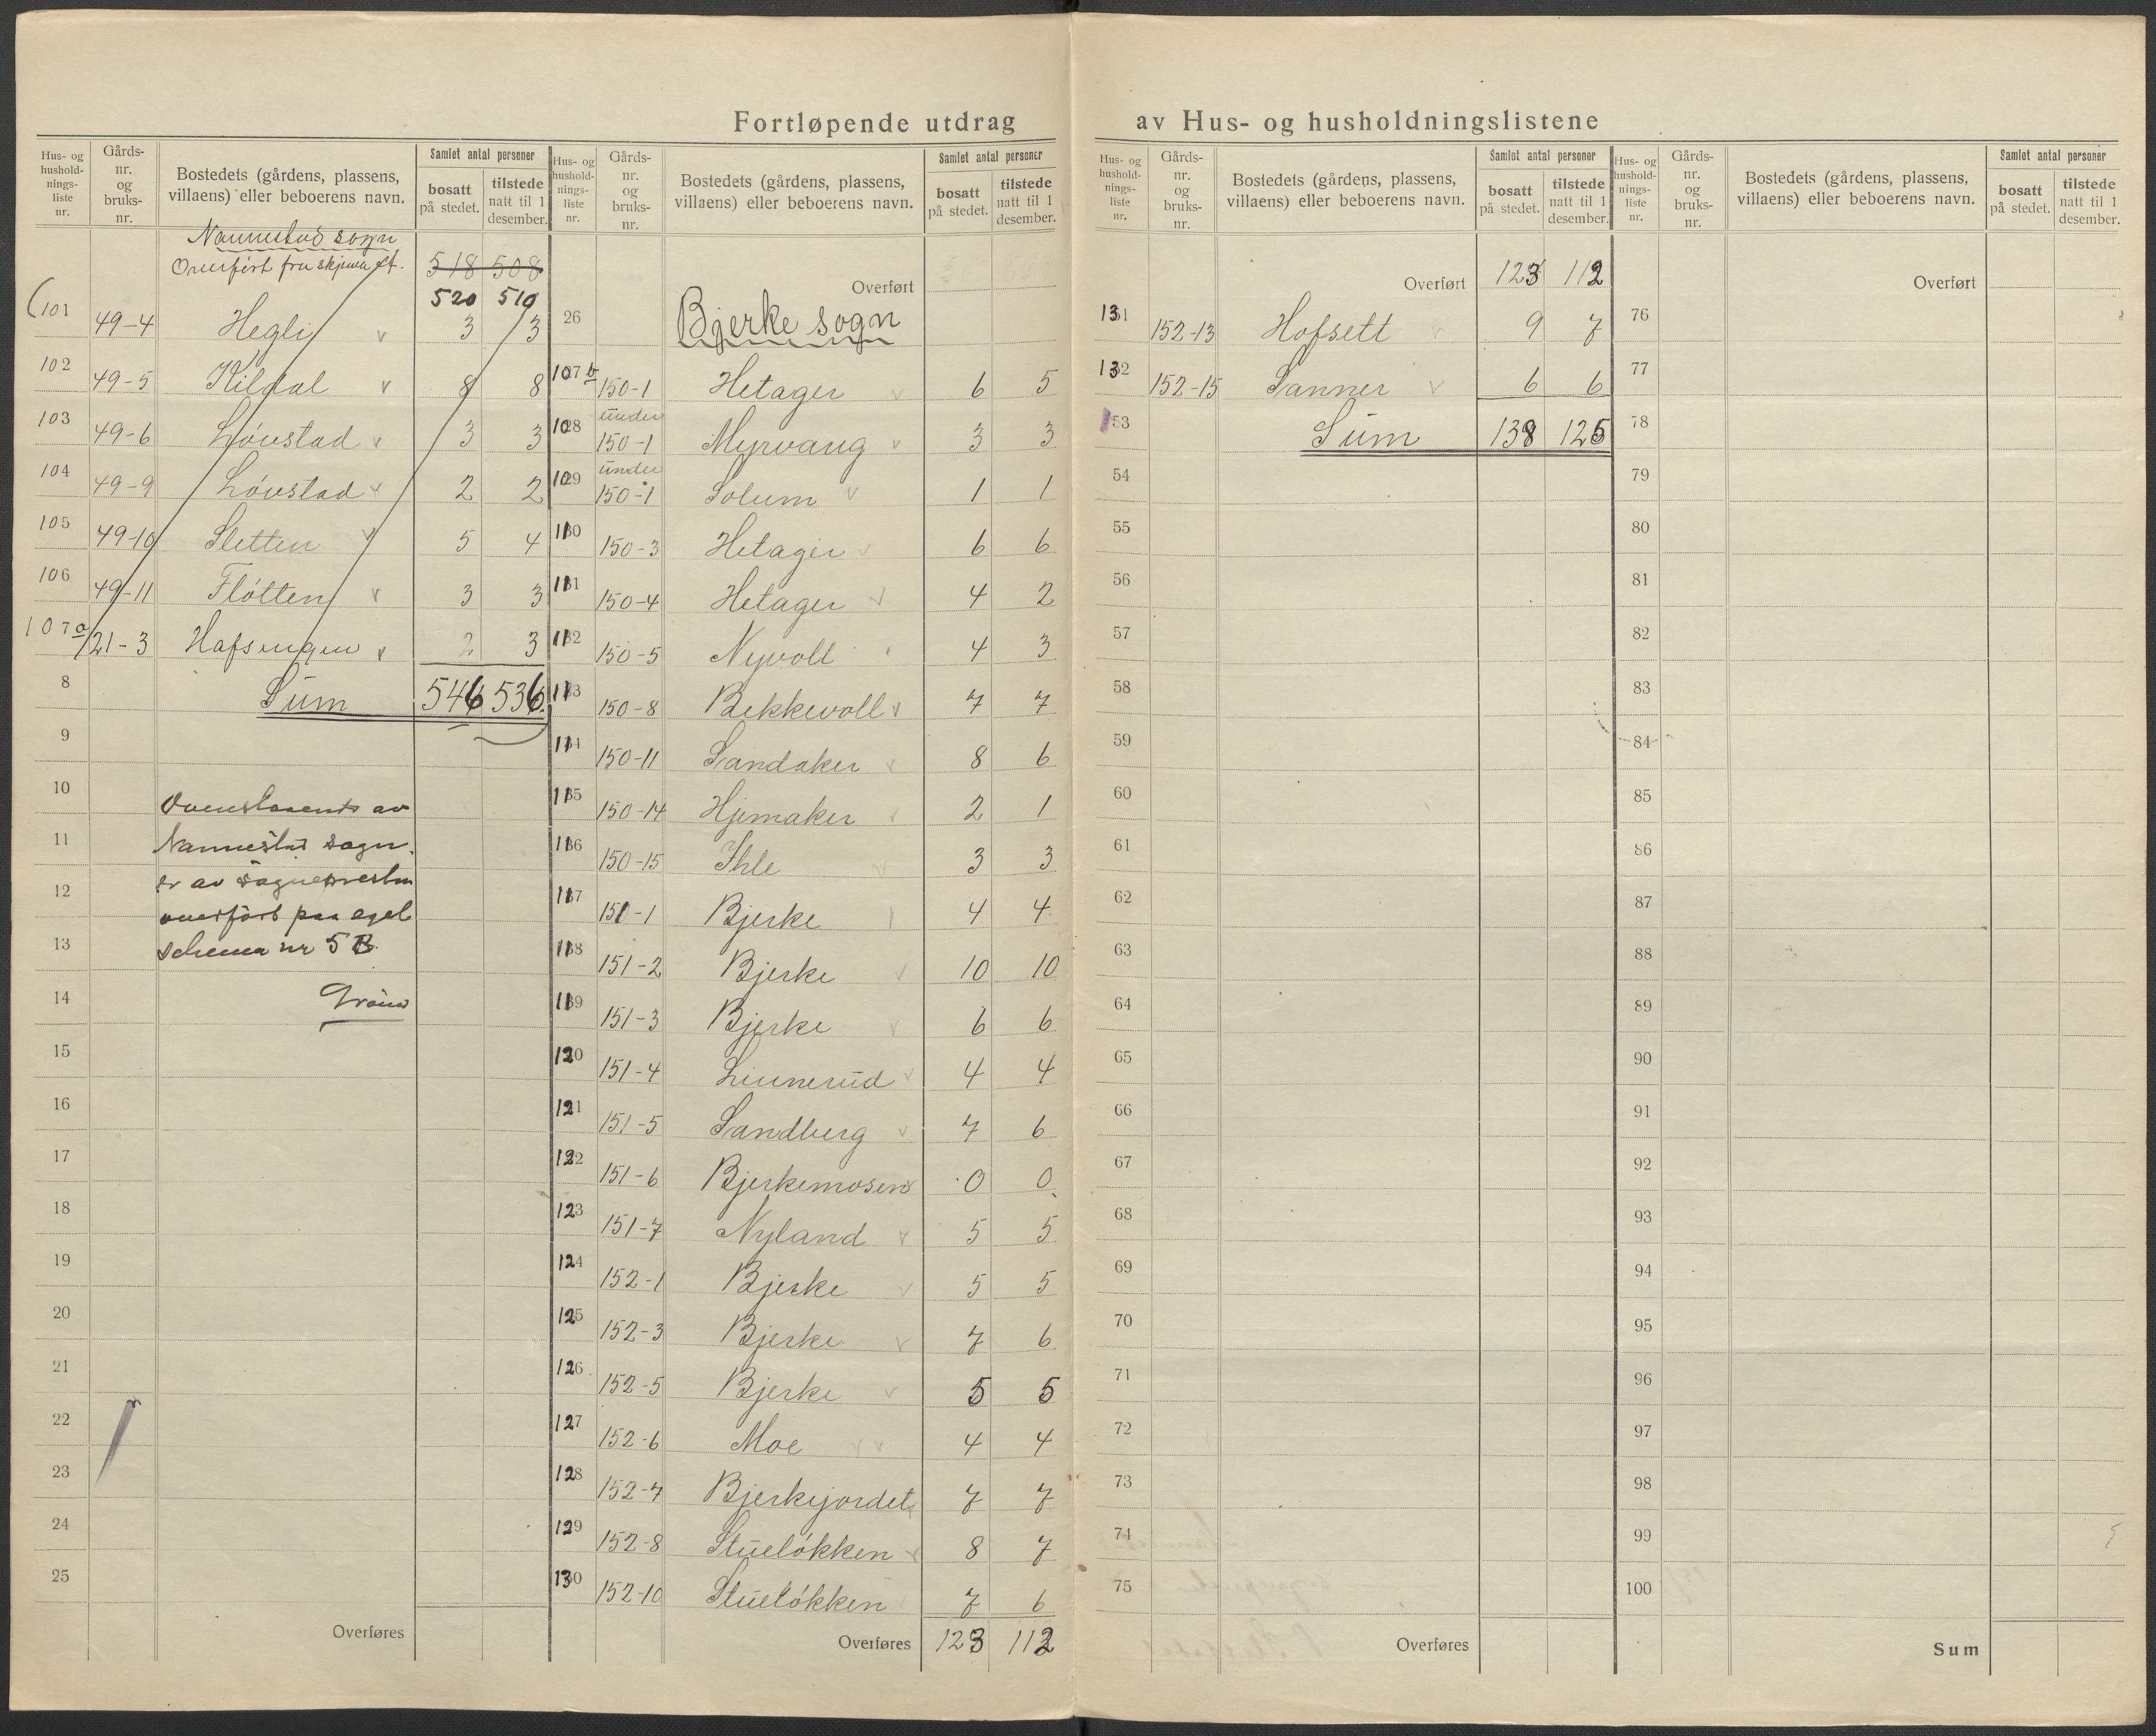 Fortløpende utdrag av Hus- og husholdningslistene
Hus- og hushold-nings-liste nr. Gårds-nr. og bruks-nr. Bostedets (gårdens, plassens, villaens) eller beboerens navn. Samlet antal personer bosatt på stedet. tilstede natt til 1 desember.
Nannestad sogn
Overført fra skjema 518 508
520 510
101 49-4 Hegli v 3 3
102 49-5 Kildal v 8 8
103 49-6 Løvstad v 3 3
104 49-9 Løvstad v 2 2
105 49-10 Sletten v 5 4
106 49-11 Fløtten v 3 3
107a 121-3 Hafsengen v 2 3
8 Sum 546 536
9
10
Ovenstaaende av
11 Nannestad sogn
er av
12
overført paa eget
13 schema nr 5 B.
14
15
16
17
18
19
20
21
22
23
24
25
Overføres
Hus- og hushold-nings-liste nr. Gårds-nr. og bruks-nr. Bostedets (gårdens, plassens, villaens) eller beboerens navn. Samlet antal personer bosatt på stedet. tilstede natt til 1 desember.
Overført
26 Bjerke sogn
107b 150-1 Hetager v 6 5
108 under 150-1 Myrvang v 3 3
109 under 150-1 Solum v 1 1
110 150-3 Hetager v 6 6
111 150-4 Hetager v 4 2
112 150-5 Nyvoll 4 3
113 150-8 Bekkevoll v 7 7
114 150-11 Sandaker v 8 6
115 150-14 Hjemaker v 2 1
116 150-15 Ihle v 3 3
117 151-1 Bjerke 4 4
118 151-2 Bjerke v 10 10
119 151-3 Bjerke v 6 6
120 151-4 Linnerud v 4 4
121 151-5 Sandberg v 7 6
122 151-6 Bjerkemosen 0 0
123 151-7 Nyland v 5 5
124 152-1 Bjerke v 5 5
125 152-3 Bjerke v 7 6
126 152-5 Bjerke v 5 5
127 152-6 Moe v v 4 4
128 152-7 Bjerkejordet 7 7
129 152-8 Stueløkken v 8 7
130 152-10 Stueløkken 7 6
Overføres 123 112
Hus- og hushold-nings-liste nr. Gårds-nr. og bruks-nr. Bostedets (gårdens, plassens, villaens) eller beboerens navn. Samlet antal personer bosatt på stedet. tilstede natt til 1 desember.
Overført 123 112
131 152-13 Hofsett v 9 7
132 152-15 Sanner v 6 6
53 Sum 138 125
54
55
56
57
58
59
60
61
62
63
64
65
66
67
68
69
70
71
72
73
74
75
Overføres
Hus- og hushold-nings-liste nr. Gårds-nr. og bruks-nr. Bostedets (gårdens, plassens, villaens) eller beboerens navn. Samlet antal personer bosatt på stedet. tilstede natt til 1 desember.
Overført
76
77
78
79
80
81
82
83
84
85
86
87
88
89
90
91
92
93
94
95
96
97
98
99
100
Sum